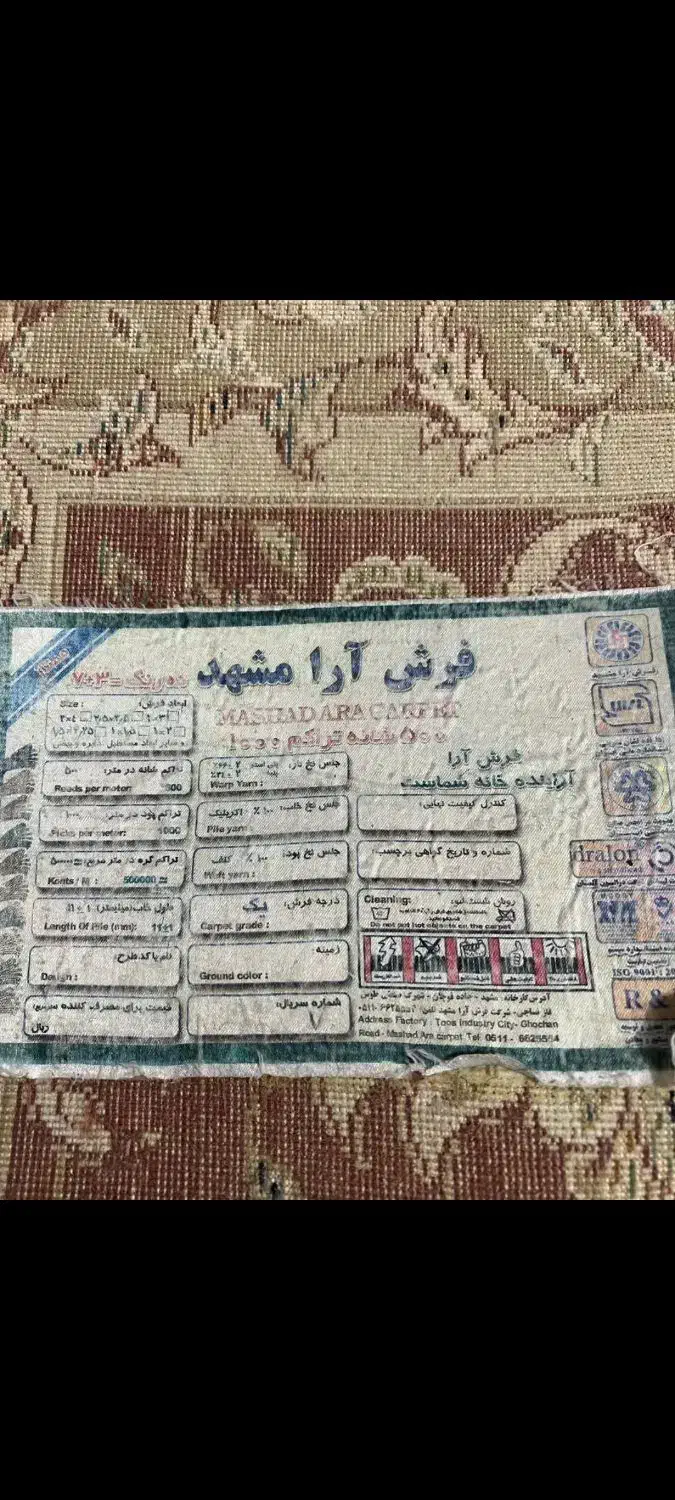 فرش آرا مشهد
ده رنگ = ۳+۷
MASHAD ARA CARPET
۵۰۰ شانه تراکم ۱۰۰۰
فرش آرا
آراینده خانه شماست
ابعاد فرش:
Size :
۱×۲
۱×۱/۵
تراکم شانه در متر: ۵۰۰
Reeds per meter:
تراکم پود در متر: ۱۰۰۰
Picks per meter: 1000
تراکم گره در متر مربع:
Konts / M : 500000
طول خاب (میلیمتر): ۱ ± ۱۱
Length Of Pile (mm): 11±1
نام یا کد طرح:
Design :
قیمت برای مصرف کننده
ریال
جنس نخ تار:
Warp Yarn :
جنس نخ خاب: ۱۰۰ ٪ اکریلیک
Pile yarn:
جنس نخ پود: ۱۰۰ ٪ کنف
Weft yarn :
درجه فرش: یک
Carpet grade :
زمینه
Ground color :
شماره سریال:
کنترل کیفیت نهایی:
شماره و تاریخ گواهی برچسب:
Cleaning:
روش شستشو:
Do not put hot objects on the carpet
آدرس کارخانه: مشهد - جاده قوچان - شهرک صنعتی طوس
فاز نساجی - شرکت فرش آرا مشهد تلفن:
Address Factory : Toos Industry City- Ghochan
Road - Mashad Ara carpet Tel: 0511 -
فرش آرا مشهد
dralon
ISO 9001:
R &